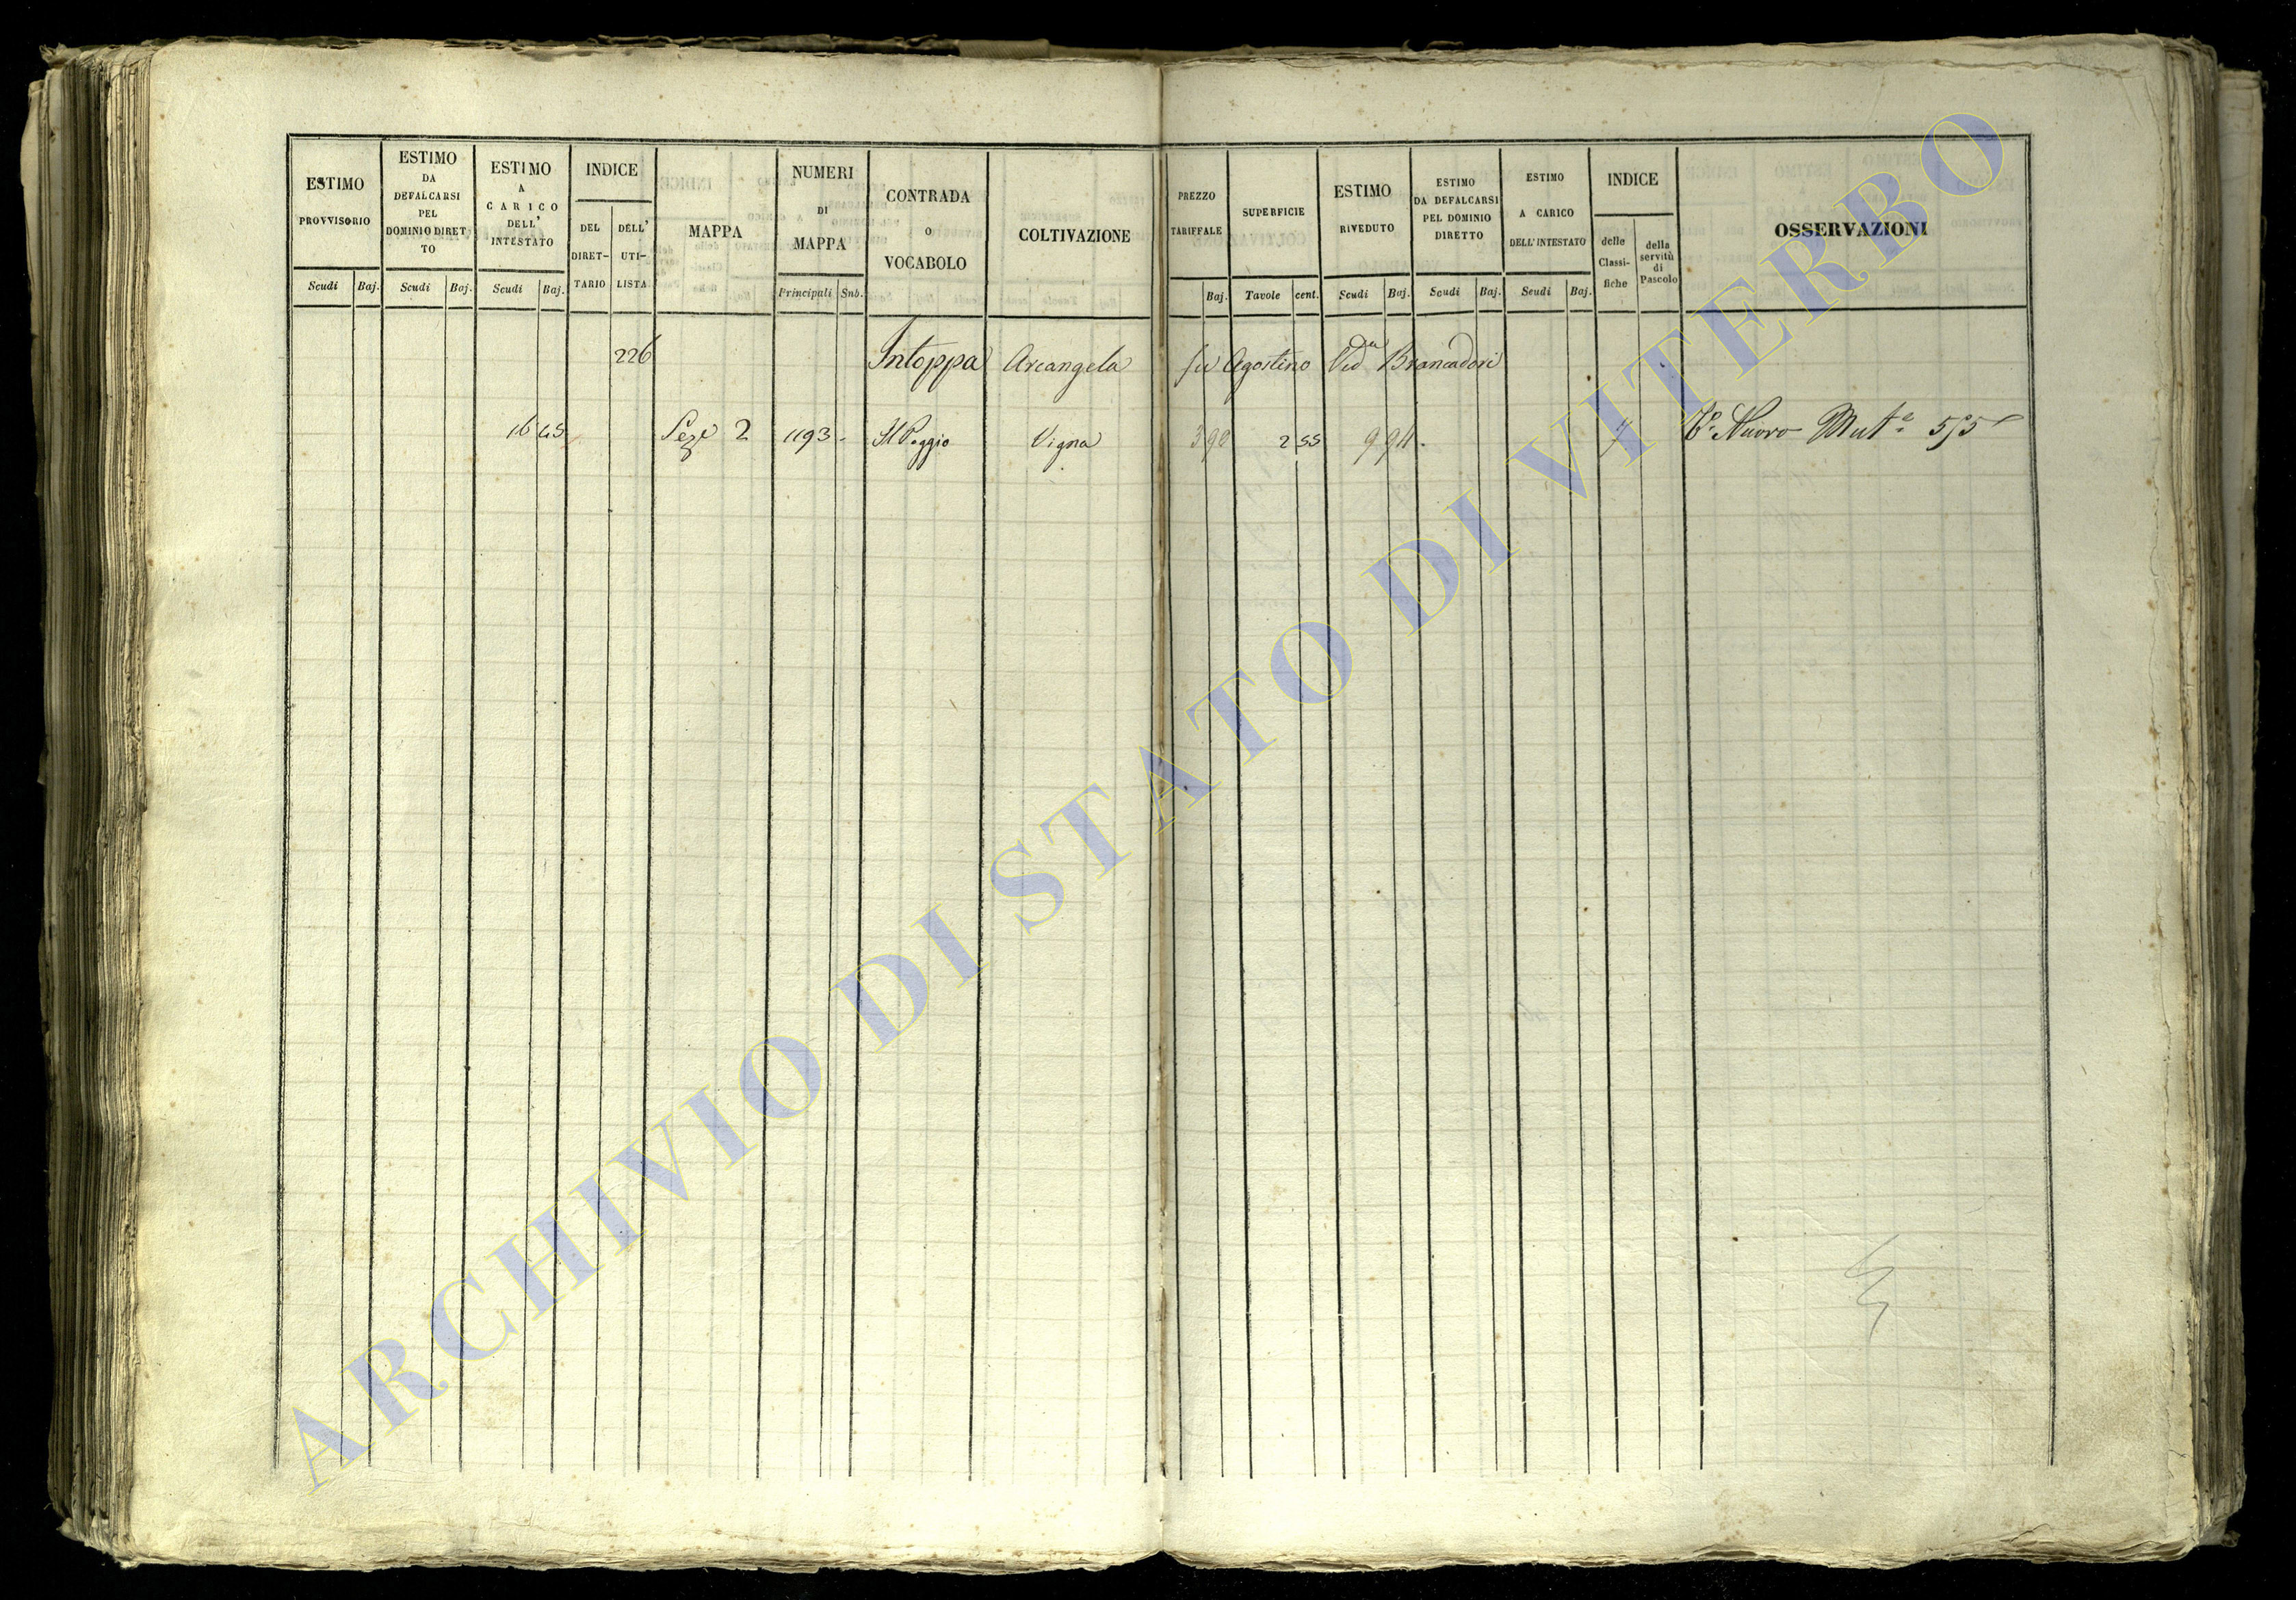 ESTIMO PROVVISORIO
Scudi Baj.
ESTIMO DA DEFALCARSI PEL DOMINIO DIRETTO
Scudi Baj.
ESTIMO A CARICO DELL' INTESTATO
Scudi Baj.
INDICE
DEL DIRET-TARIO
DELL' UTI-LISTA
MAPPA
NUMERI DI MAPPA
Principali Sub.
CONTRADA O VOCABOLO
COLTIVAZIONE
PREZZO TARIFFALE
Baj.
SUPERFICIE
Tavole cent.
ESTIMO RIVEDUTO
Scudi Baj.
ESTIMO DA DEFALCARSI PEL DOMINIO DIRETTO
Scudi Baj.
ESTIMO A CARICO DELL' INTESTATO
Scudi Baj.
INDICE
delle Classi-fiche
della servitù di Pascolo
OSSERVAZIONI
226 Intoppa Arcangela fu Agostino Ved. Brancadori
16 45 Sez. 2 1193 Il Poggio Vigna 390 2 55 9 94 7 Nuovo Mut.e 575
ARCHIVIO DI STATO DI VITERBO